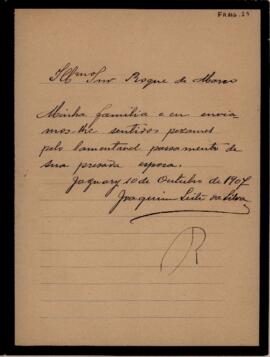 Illmo Snr Roque de Marco
Minha familia e eu envia
mos-lhe sentidos pezames
pelo lamentavel passamento de
sua presada esposa.
Jaguary 10 de Outubro de 1907
Joaquim Leite da Silva
R